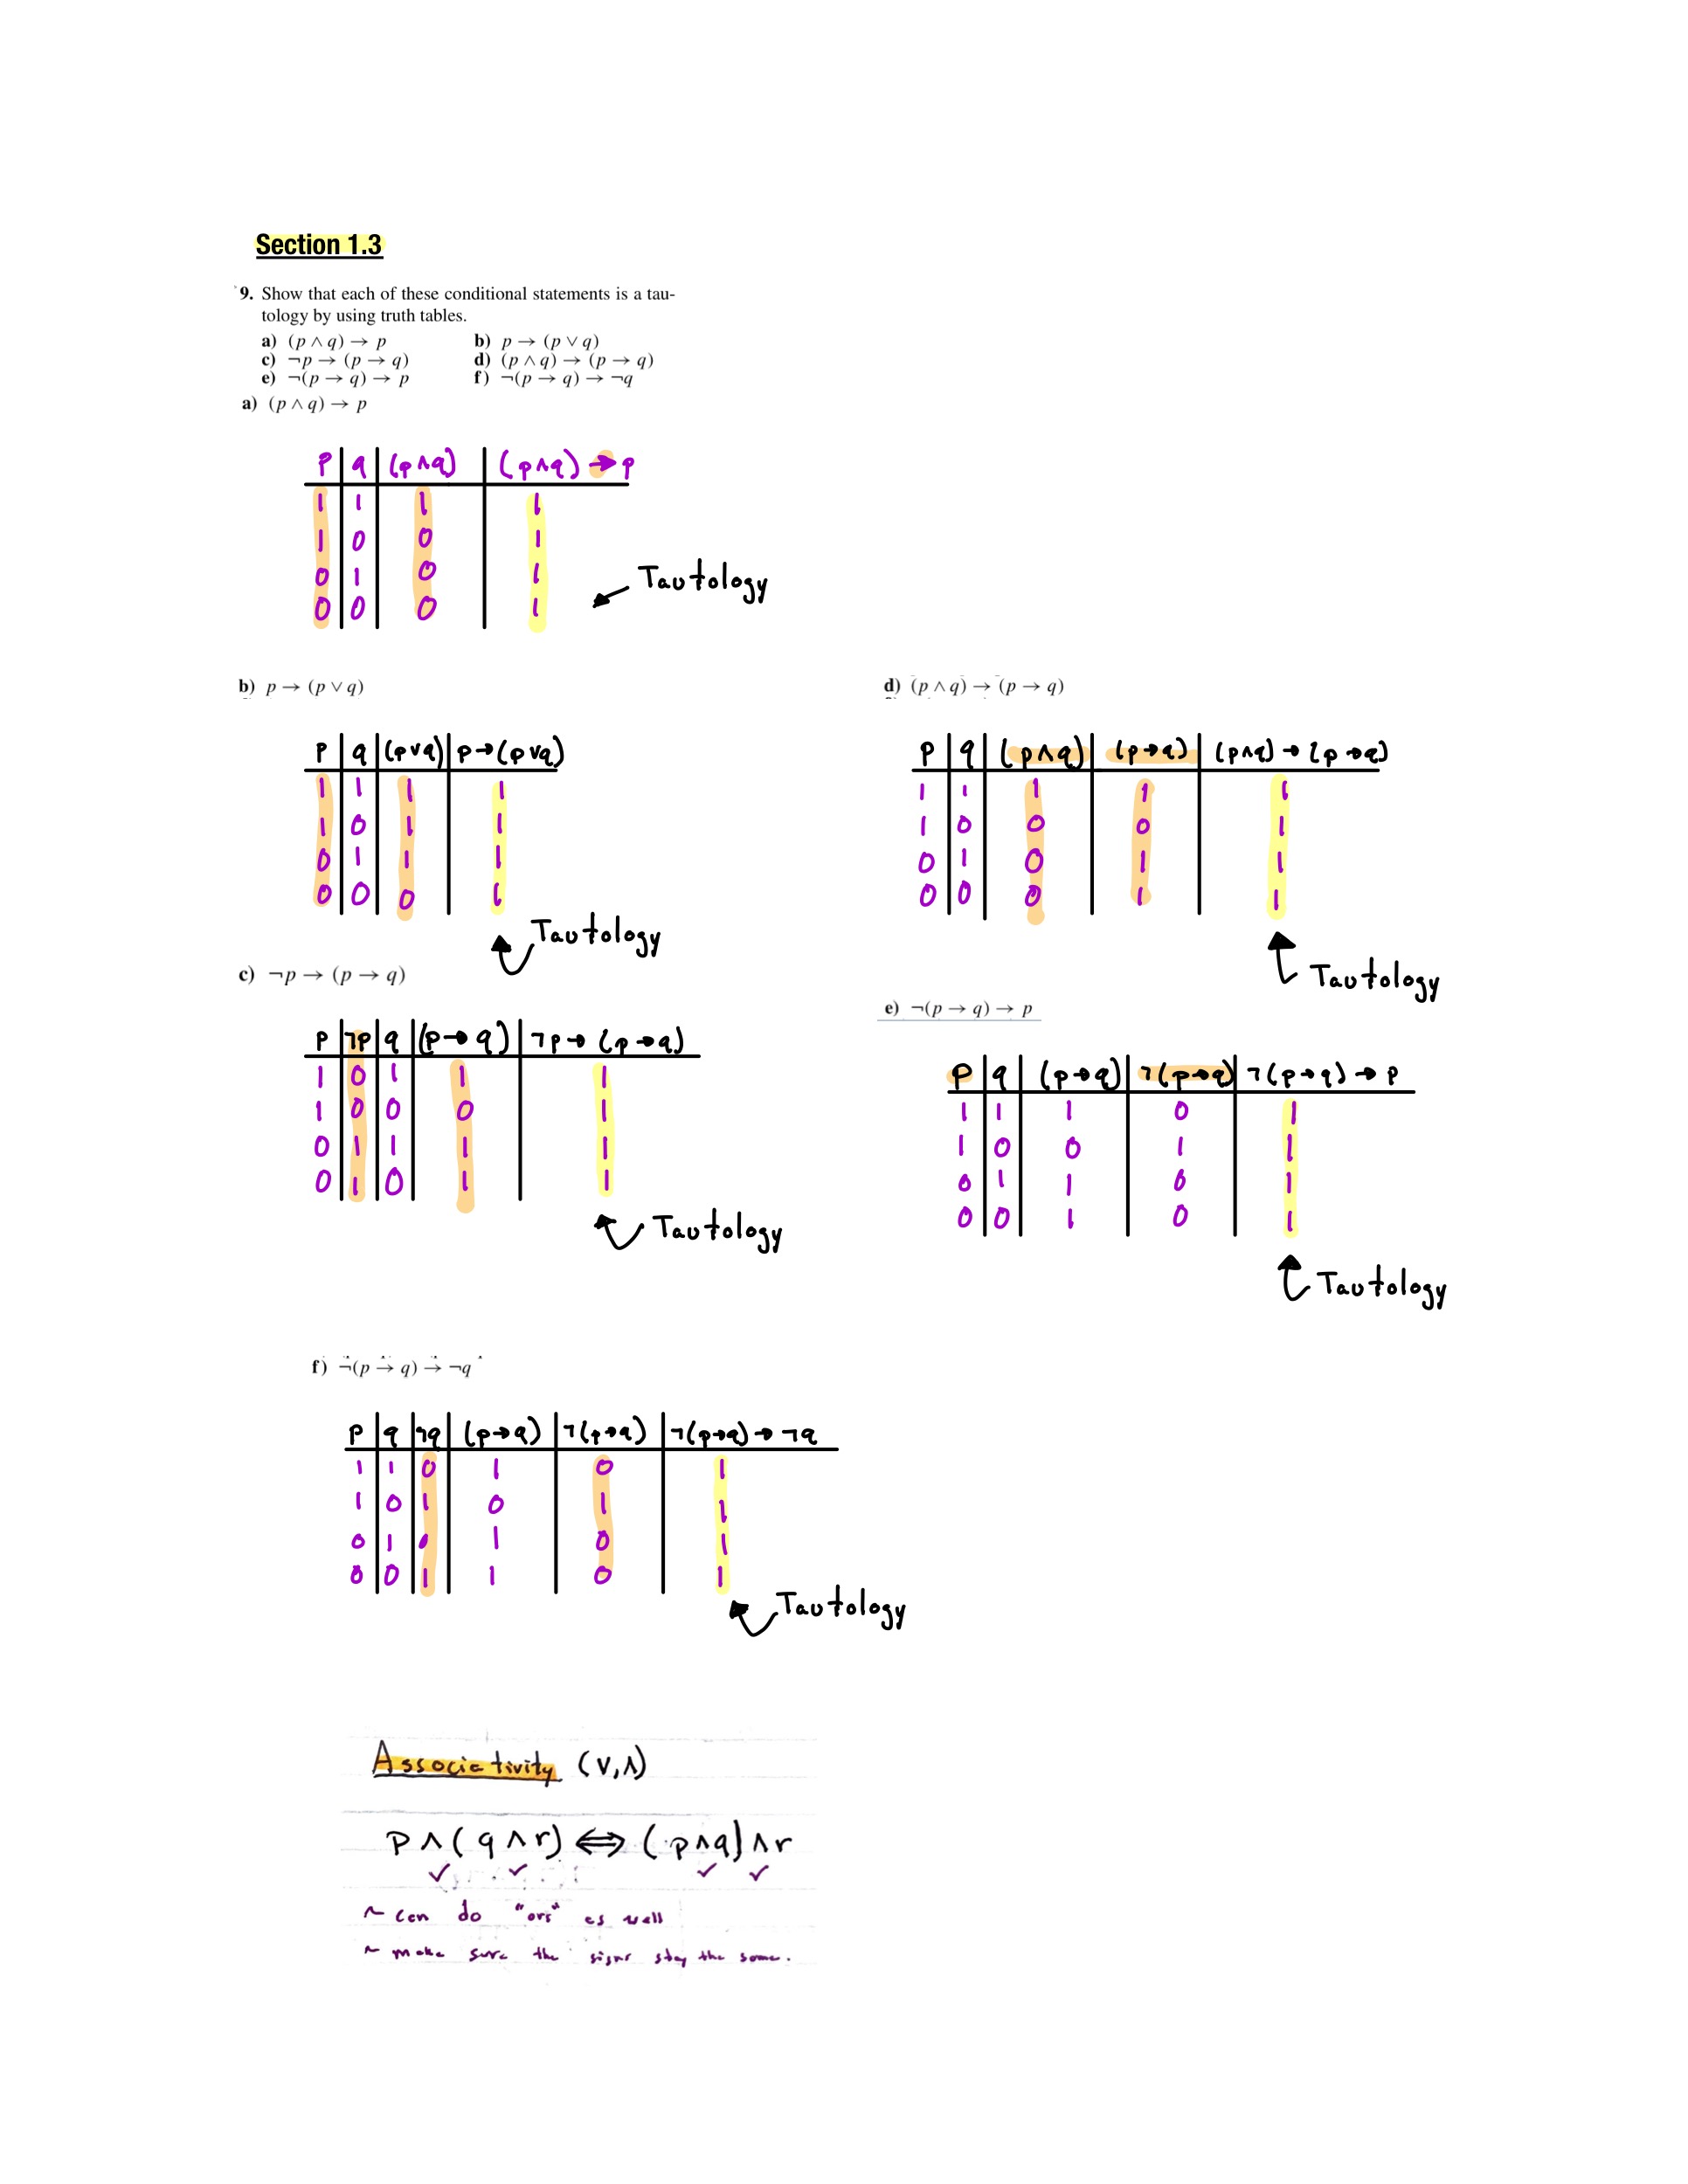 Section 1.3
9. Show that each of these conditional statements is a tau-
tology by using truth tables.
a) (p ∧ q) → p b) p → (p ∨ q)
c) ¬p → (p → q) d) (p ∧ q) → (p → q)
e) ¬(p → q) → p f) ¬(p → q) → ¬q
a) (p ∧ q) → p
p q (p∧q) (p∧q) → p
1 1 1 1
1 0 0 1
0 1 0 1
0 0 0 1
Tautology
b) p → (p ∨ q)
p q (p∨q) p→(p∨q)
1 1 1 1
1 0 1 1
0 1 1 1
0 0 0 1
Tautology
c) ¬p → (p → q)
p ¬p q (p→q) ¬p→(p→q)
1 0 1 1 1
1 0 0 0 1
0 1 1 1 1
0 1 0 1 1
Tautology
d) (p ∧ q) → (p → q)
p q (p∧q) (p→q) (p∧q)→(p→q)
1 1 1 1 1
1 0 0 0 1
0 1 0 1 1
0 0 0 1 1
Tautology
e) ¬(p → q) → p
p q (p→q) ¬(p→q) ¬(p→q)→p
1 1 1 0 1
1 0 0 1 1
0 1 1 0 1
0 0 1 0 1
Tautology
f) ¬(p → q) → ¬q
p q ¬q (p→q) ¬(p→q) ¬(p→q)→¬q
1 1 0 1 0 1
1 0 1 0 1 1
0 1 0 1 0 1
0 0 1 1 0 1
Tautology
Associativity (∨,∧)
p∧(q∧r) ⟺ (p∧q)∧r
✓ ✓ ✓ ✓
~ can do "ors" as well
~ make sure the signs stay the same.